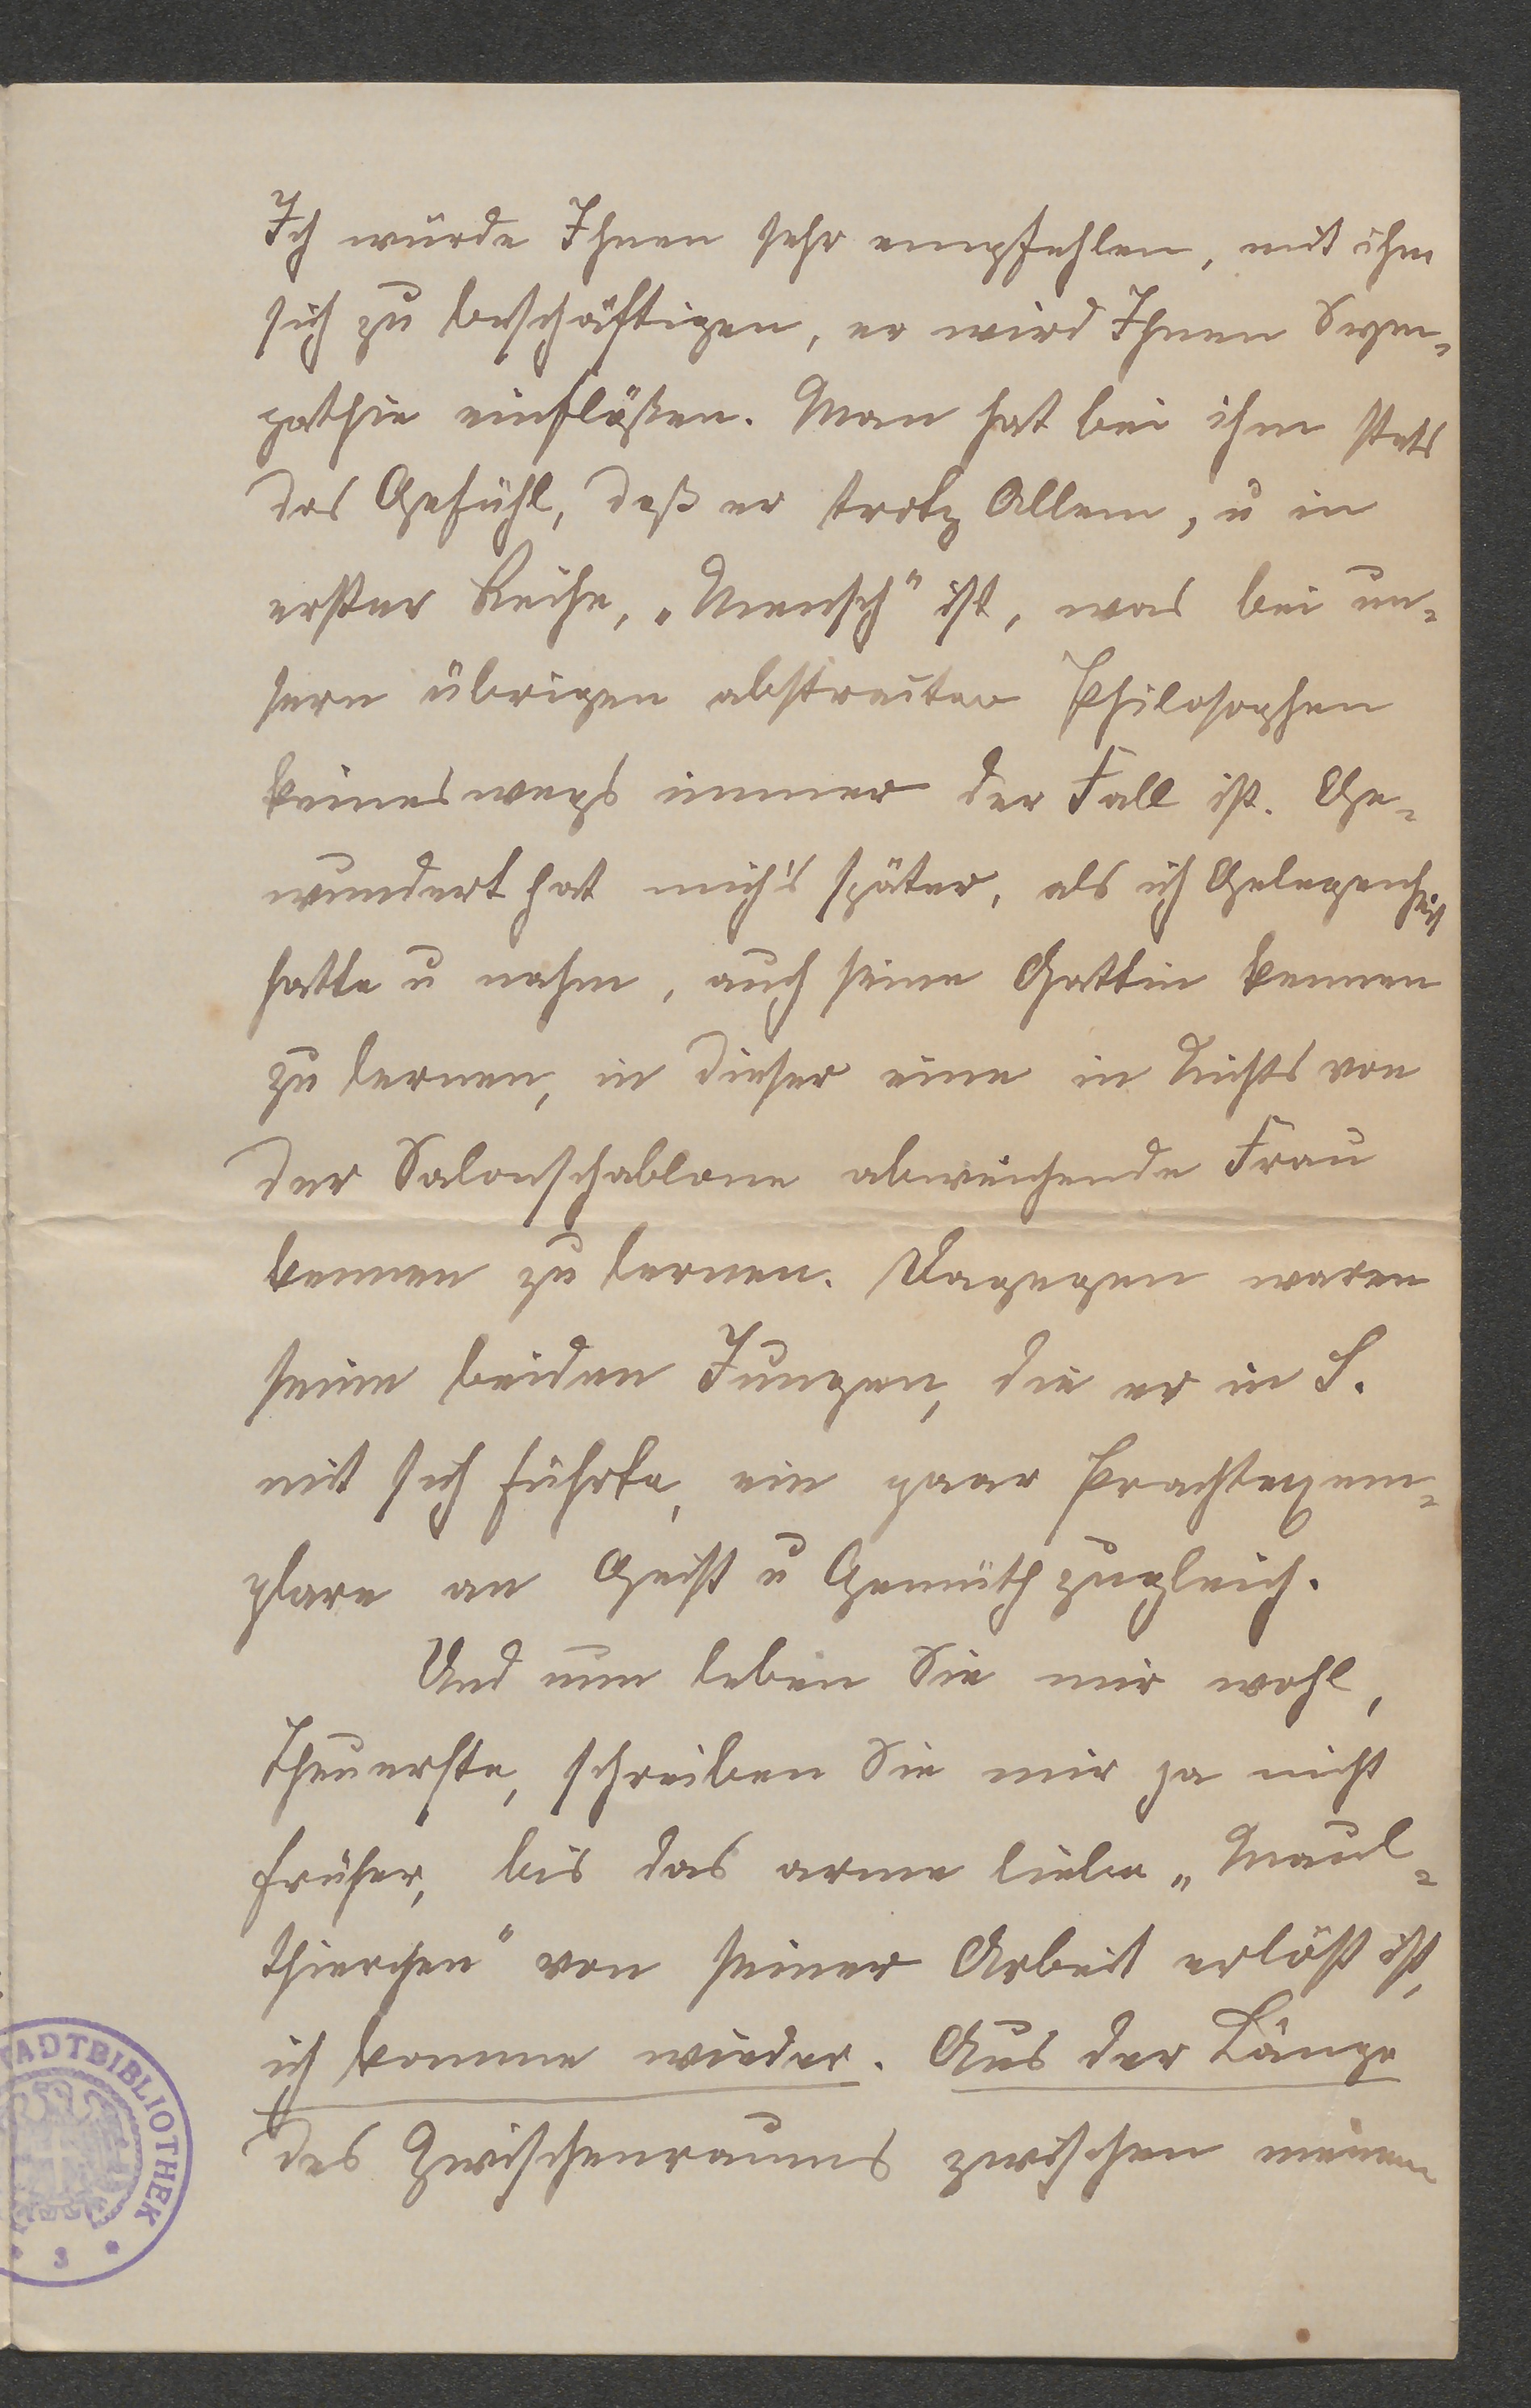 Ich würde Ihnen sehr empfehlen, mit ihm
sich zu beschäftigen, er wird Ihnen Sym-
pathie einflößen. Man hat bei ihm stets
das Gefühl, daß er trotz Allem, u in
erster Reihe, „Mensch" ist, was bei un-
sern übrigen Philosophen
keineswegs immer der Fall ist. Ge-
wundert hat mich's später, als ich Gelegenheit
hatte u nahm, auch seine Gattin kennen
zu lernen, in dieser eine in Nichts von
der Salonschablone abweichende Frau
kennen zu lernen. Dagegen waren
seine beiden Jungen, die er in S.
mit sich führte, ein paar Prachtexem-
plare an Geist u Gemüth zugleich.
Und nun leben Sie mir wohl,
Theuerste, schreiben Sie mir ja nicht
früher, bis das arme liebe „Maul-
thierchen" von seiner Arbeit erlöst ist,
ich komme wieder. Aus der Länge
des Zwischenraums zwischen meinem
ADTBIBLIOTHEK
3